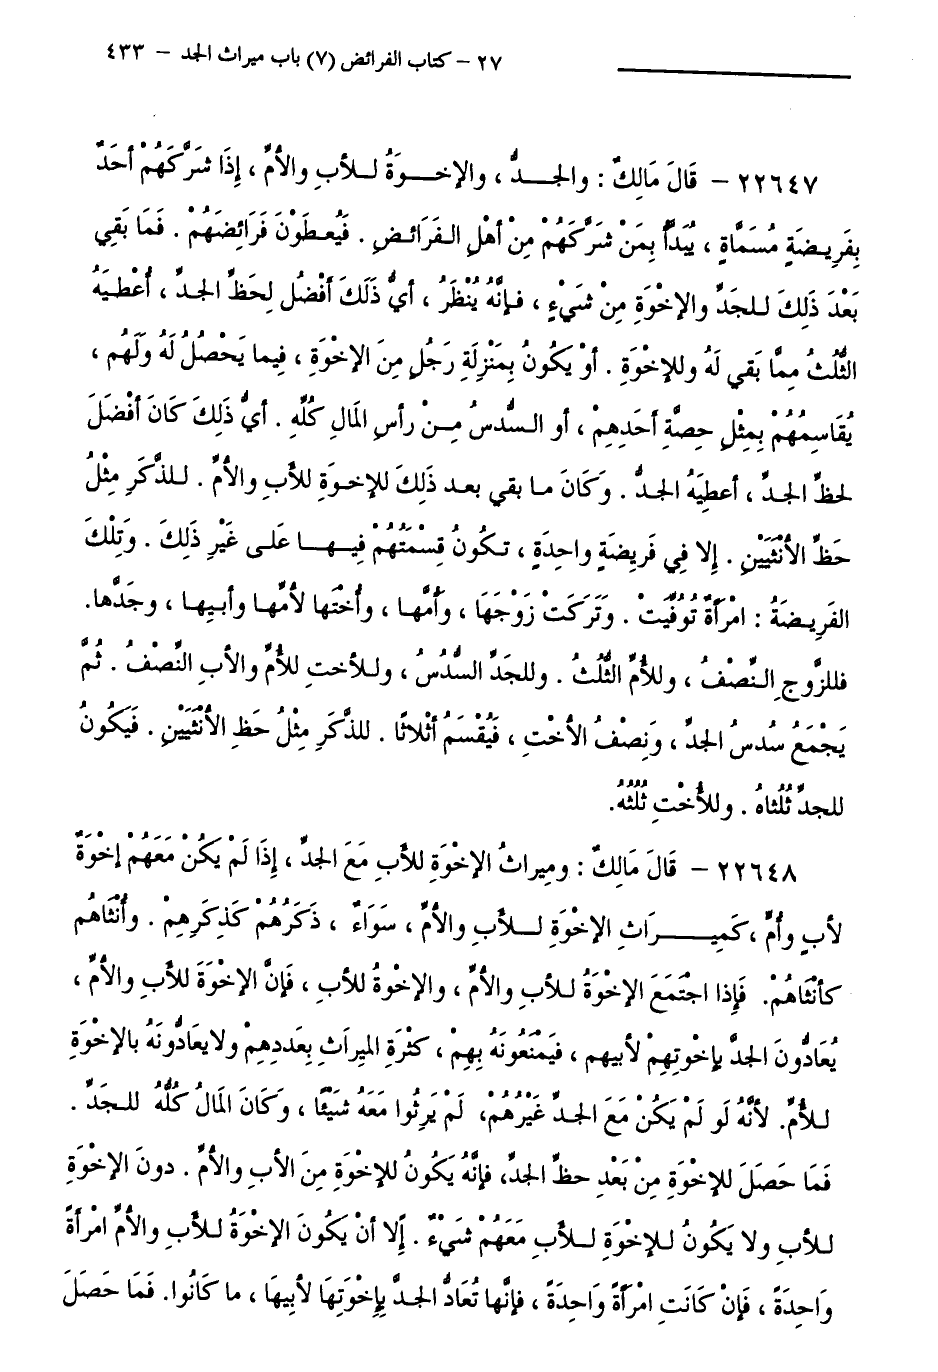 ٢٧ - كتاب الفرائض (٧) باب ميراث الجد - ٤٣٣
٢٢٦٤٧ - قَالَ مَالِكٌ : والجَــدُّ ، والإخــوَةُ لـلأبِ والأُمِّ ، إِذَا شَرَّكَهُمْ أحَدٌ
بِفَرِيـضَةٍ مُسَمَّاةٍ ، يُبَدَّأُ بِمَنْ شَرَّكَهُمْ مِنْ أهْلِ الـفَرَائضِ . فَيُعطَوْنَ فَرَائِضَهُمْ . فَمَا بَقِي
بَعْدَ ذَلِكَ لـلجَدِّ والإخْوَةِ مِنْ شَيْءٍ ، فـإنَّهُ يُنْظَرُ ، أيُّ ذَلَكَ أفْضُل لِحَظِّ الجـدِّ ، أُعْطيَهُ
الثُّلُثُ مِمَّا بَقي لَهُ وللإخْوَةِ . أوْ يَكُونُ بِمَنْزِلَةِ رَجُلٍ مِنَ الإخْوَةِ ، فِيما يَحْصُلُ لَهُ ولَهُم ،
يُقَاسِمُهُمْ بِمِثْلِ حِصَّةِ أحَدِهِمْ ، أو الـسُّدسُ مِـنْ رأسِ المَالِ كُلِّهِ . أيُّ ذَلِكَ كَانَ أفْضَلَ
لحَظِّ الجَـدِّ ، أُعطِيَهُ الجَـدُّ . وَكَانَ مـا بقي بعـد ذَلِكَ للإخـوَةِ للأبِ والأُمِّ . لـلذَّكَرِ مِثْلُ
حَظِّ الأُنْثَيَيْنِ . إلا فِي فَرِيضَةٍ واحِدَةٍ ، تَـكُونُ قِسْمَتُهُمْ فِيـهـا عَلـى غَيْرِ ذَلِكَ . وَتِلْكَ
الفَرِيـضَةُ : امْرَأةٌ تُوُفِّيَتْ . وَتَرَكَتْ زَوْجَهَا ، وأُمَّهـا ، وأُخْتَها لأُمِّهـا وأبـيها ، وجَدَّها.
فللزَّوجِ الـنِّصْفُ ، وللأُمِّ الثُّلُثُ . وللجَدِّ السُّدُسُ ، ولـلأختِ للأُمِّ والأبِ النِّصْفُ . ثُمَّ
يَجْمَعُ سُدسُ الجَدِّ ، ونِصْفُ الأُخْتِ ، فَيُقْسَمُ أثْلاثًا . للذَّكَرِ مِثْلُ حَظِ الأُنْثَيَيْنِ . فَيَكُونُ
للجدِّ ثُلُثاهُ . وللأُخْتِ ثُلُثُهُ.
٢٢٦٤٨ - قَالَ مَالِكٌ : ومِيراثُ الإخْوَةِ للأبِ مَعَ الجَدِّ ، إِذَا لَمْ يَكُنْ مَعَهُمْ إخْوَةٌ
لأبٍ وأُمٍّ ،كَمِيـــرَاثِ الإخْوَةِ لـلأبِ والأُمِّ ، سَوَاءٌ ، ذَكَرُهُمْ كَذَكَرِهِمْ . وأُنْثَاهُم
كأُنْثَاهُمْ. فَإِذا اجْتَمَعَ الإخْوَةُ لـلأبِ والأُمِّ ، والإخْوةُ للأبِ ، فَإنَّ الإخْوَةَ للأبِ والأُمِّ ،
يُعَادُّونَ الجَدَّ بإخْوتِهِمْ لأبيهم ، فَيَمنَعُونَهُ بِهِمْ ، كثْرَةِ المِيرَاثِ بِعَددِهِمْ ولايعَادُّونَهُ بالإخْوَةِ
لـلأُمِّ. لأنَّهُ لَو لَمْ يَكُنْ مَعَ الجَـدِّ غَيْرُهُمْ، لَمْ يَرِثُوا مَعَهُ شَيئًا ، وكَانَ المَالُ كُلُّهُ للجَدِّ .
فَمَا حَصَلَ للإخْوَةِ مِنْ بَعْدِ حظِّ الجَدِّ، فإنَّهُ يَكُونُ للإخْوَةِ مِنَ الأبِ والأُمِّ . دونَ الإخْوَةِ
للأبِ ولا يَكُونُ للإخْوَةِ لـلأبِ مَعَهُمْ شَيْءٌ . إلا أنْ يَكُونَ الإخْوَةُ للأبِ والأُمِّ امْرأةً
وَاحِدَةً ، فَإنْ كَانَتِ امْرَأةً وَاحِدَةً ، فإنَّها تُعَادُّ الجَدَّ بِإِخْوَتِهَا لأبِيهَا ، ما كَانُوا. فَمَا حَصَلَ